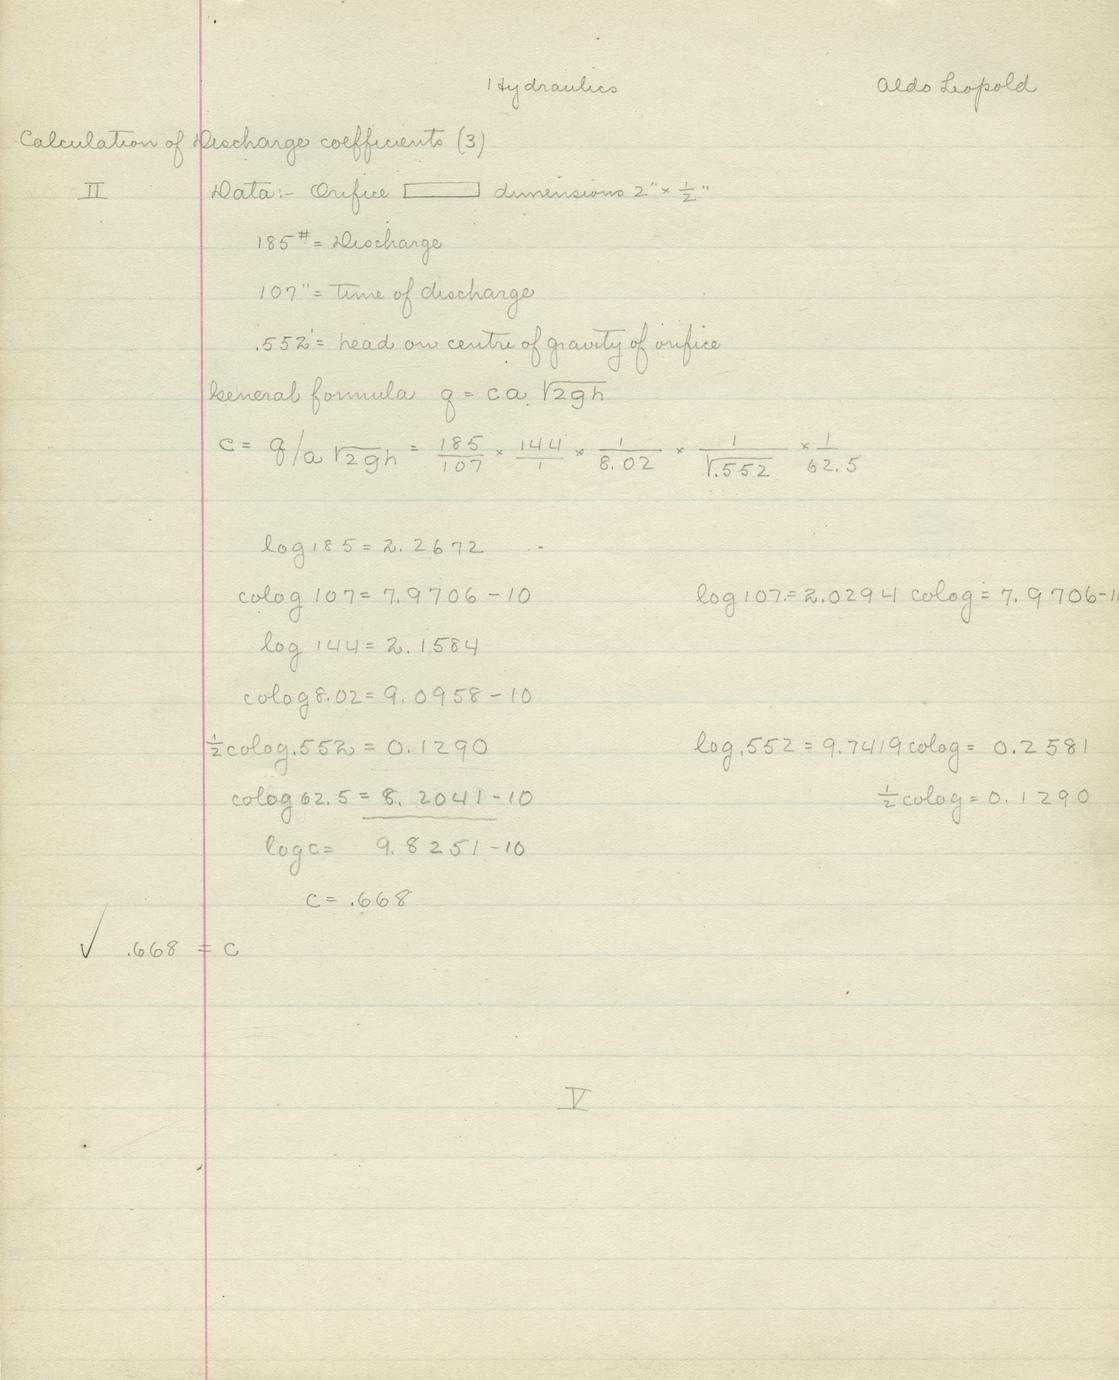 Hydraulics Aldo Leopold
Calculation of Discharge coefficients (3)
II Data:- Orifice dimensions 2" × 1/2"
185# = Discharge
107" = time of discharge
.552' = head on centre of gravity of orifice
General formula q = ca √2gh
c = q/a √2gh = 185/107 × 144/1 × 1/8.02 × 1/√.552 × 1/62.5
log 185 = 2.2672
colog 107 = 7.9706-10 log 107 = 2.0294 colog = 7.9706-1
log 144 = 2.1584
colog 8.02 = 9.0958-10
1/2 colog .552 = 0.1290 log .552 = 9.7419 colog = 0.2581
colog 62.5 = 8.2041-10 1/2 colog = 0.1290
log c = 9.8251-10
c = .668
✓ .668 = c
V